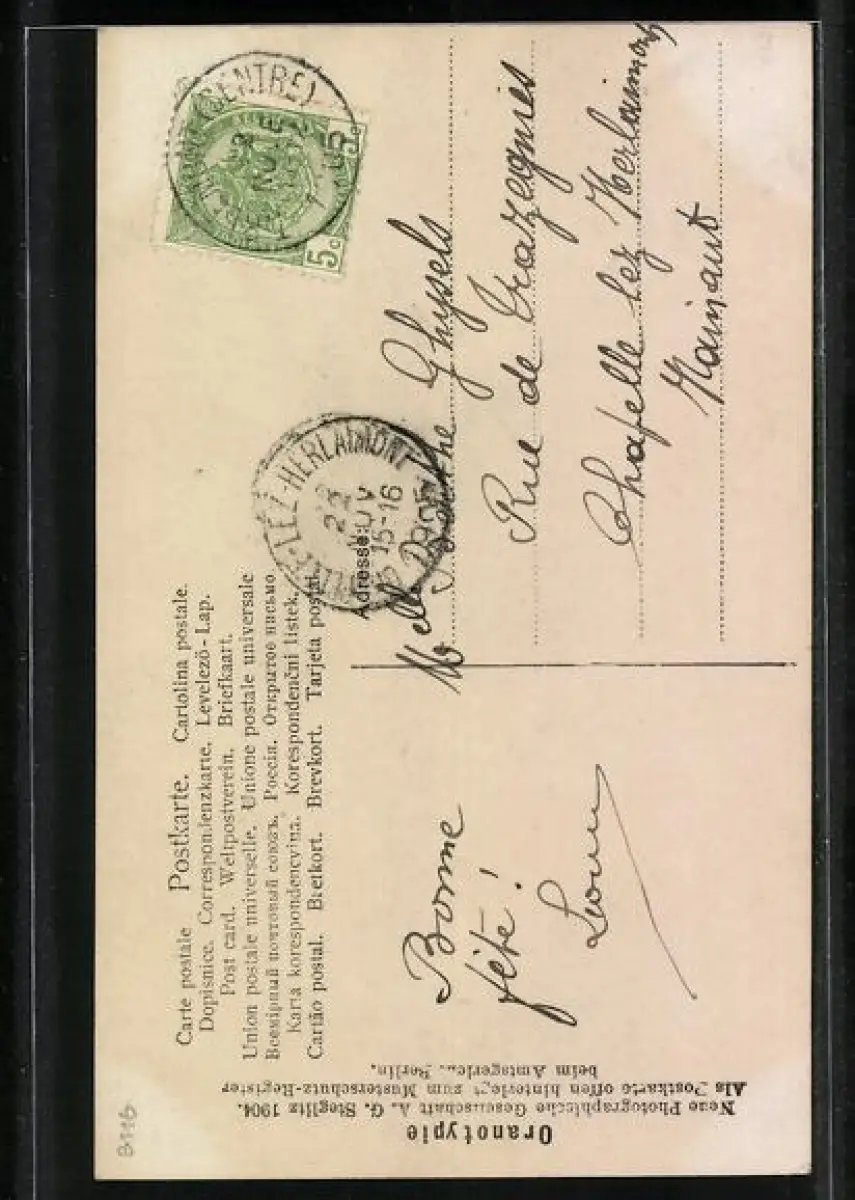 Carte postale Postkarte. Cartolina postale.
Dopisnice. Correspondenzkarte. Levelező-Lap.
Post card. Weltpostverein. Briefkaart.
Union postale universelle. Unione postale universale
Всемірный почтовый союзъ. Россія. Открытое письмо
Karta korespondencyjna. Korespondenčni listek.
Cartão postal. Brefkort. Brevkort. Tarjeta postal.
(CENTRE)
NOV
5c 5c
LEZ-HERLAIMONT
22
NOV
15-16
1905
Adresse:
Melle Ghysels
Rue de Trazegnies
Chapelle lez Herlaimont
Hainaut
Bonne
fête!
Oranotypie
Neue Photographische Gesellschaft A. G. Steglitz 1904.
Als Postkarte offen hinterlegt zum Musterschutz-Register
beim Amtsgericht Berlin.